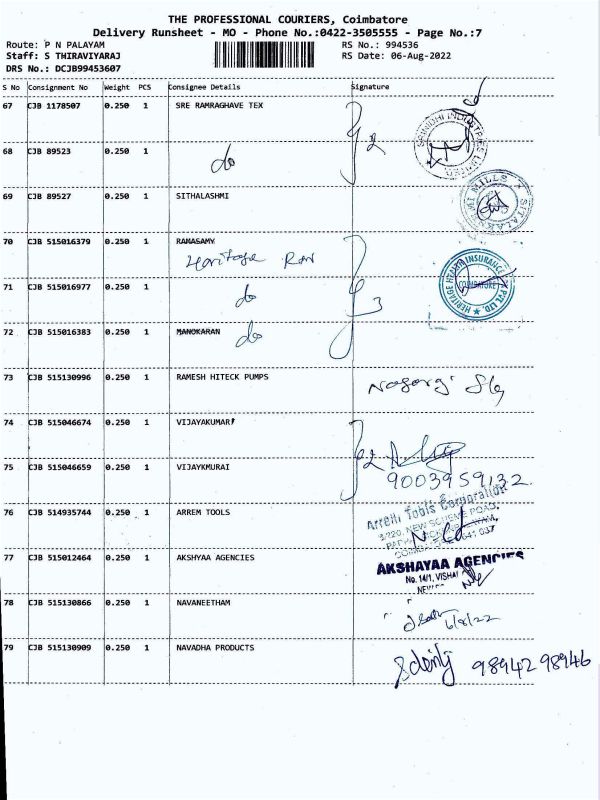 THE PROFESSIONAL COURIERS, Coimbatore
Delivery Runsheet - MO - Phone No.:0422-3505555 - Page No.:7
Route: P N PALAYAM
Staff: S THIRAVIYARAJ
DRS No.: DCJB99453607
RS No.: 994536
RS Date: 06-Aug-2022
S No Consignment No Weight PCS Consignee Details Signature
67 CJB 1178507 0.250 1 SRE RAMRAGHAVE TEX
2
SRINIDHI INDUSTRIES LIMITED
68 CJB 89523 0.250 1
do
69 CJB 89527 0.250 1 SITHALASHMI
MILLS
70 CJB 515016379 0.250 1 RAMASAMY
Heritage
HERITAGE HEALTH INSURANCE PVT. LTD.
COIMBATORE
71 CJB 515016977 0.250 1
do
3
72 CJB 515016383 0.250 1 MANOKARAN do
73 CJB 515130996 0.250 1 RAMESH HITECK PUMPS
74 CJB 515046674 0.250 1 VIJAYAKUMAR
2
75 CJB 515046659 0.250 1 VIJAYKMURAI
9003959132
76 CJB 514935744 0.250 1 ARREM TOOLS
Arrem Tools Corporation
NEW SCHEME ROAD,
77 CJB 515012464 0.250 1 AKSHYAA AGENCIES
AKSHAYAA AGENCIES
No. 14/1, VISHAL
78 CJB 515130866 0.250 1 NAVANEETHAM
6/8/22
79 CJB 515130909 0.250 1 NAVADHA PRODUCTS
98942 98946